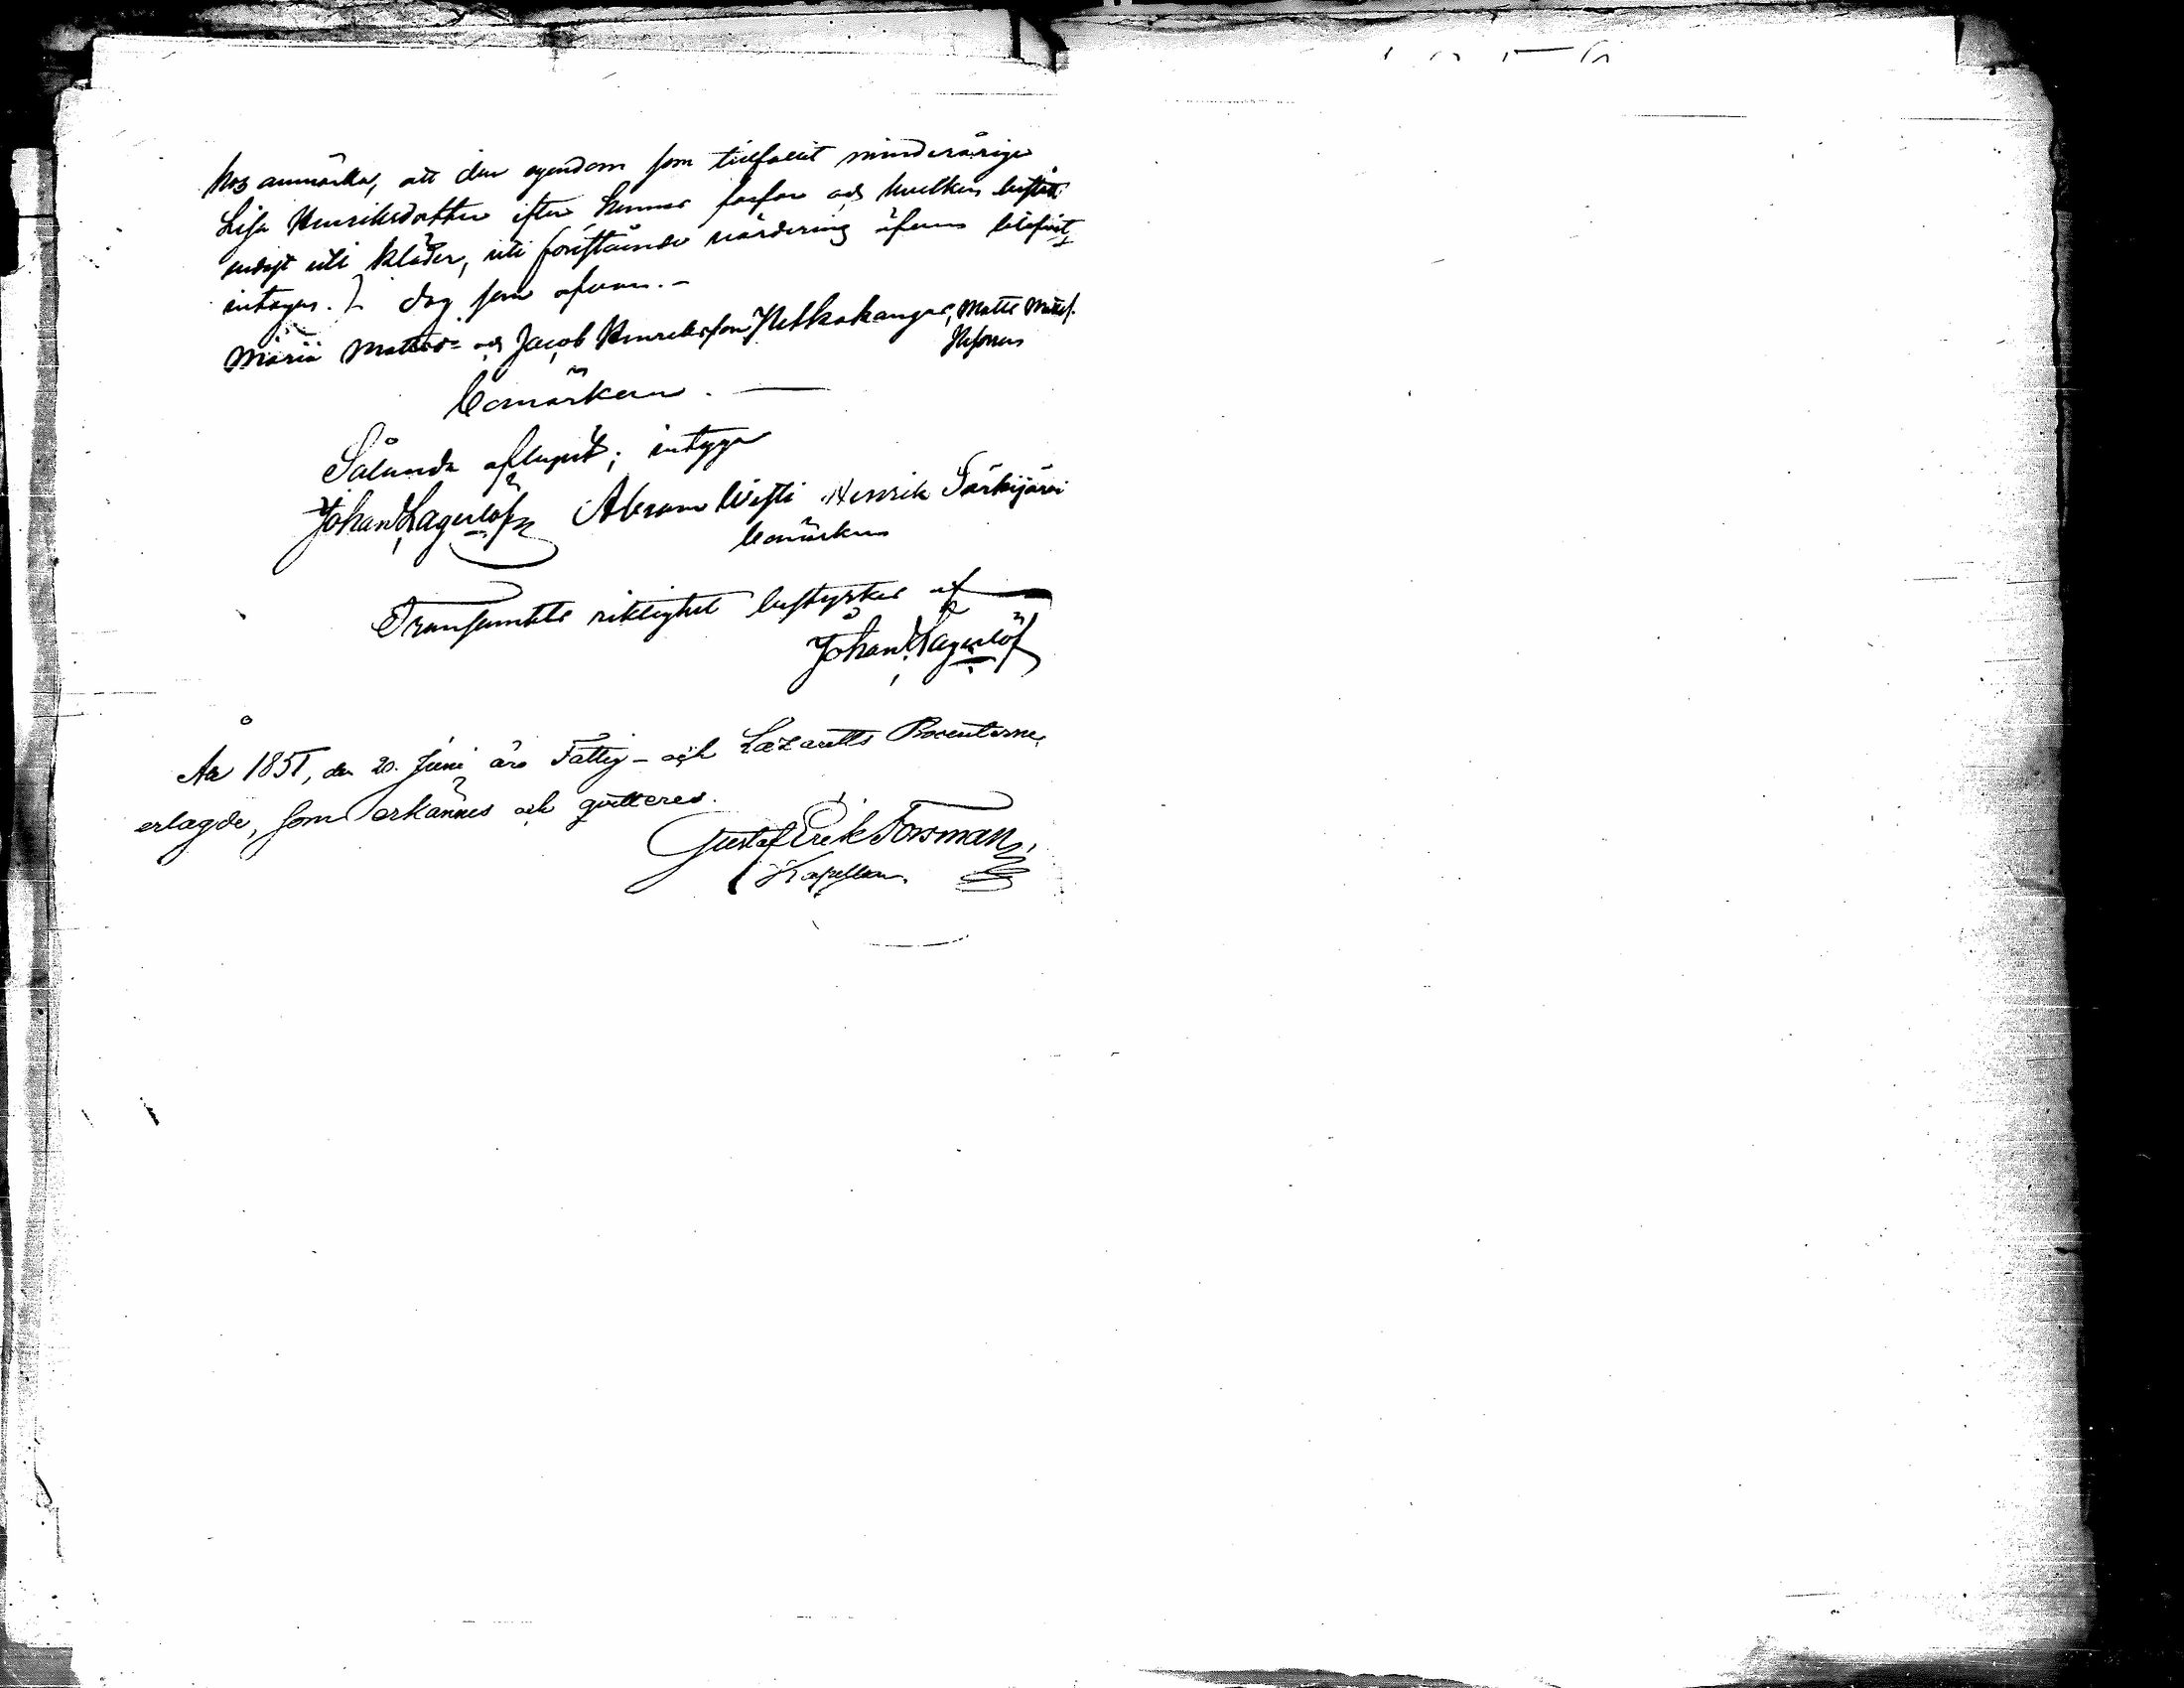 hos anmärka, att den egendom som tillfallit minderårige
Lisa Henriksdotter efter hennes farfar och hvilken bestått
endast uti kläder, uti förestående värdering äfvens blifvit
intagen. Dag som ofvan.-
Maria Matts- och Jacob Henriksson Hetkokangas, Matts Matts.
bomärken.
Sålunda aflupit; intyga
Johan Lagerlöf Abram Wefti Henrik Särkijärvi
bomärken
Transumtets riktighet bestyrkes af
Johan Lagerlöf
År 1851, den 20. Juni äro Fattig- och Lazaretts Procenterne
erlagde, som erkännes och qvitteres.
Gustaf Erik Forsman
Kapellan